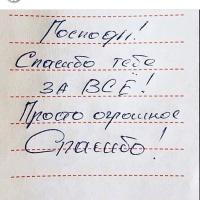 Господи!
Спасибо тебе
ЗА ВСЁ!
Просто огромное
Спасибо!